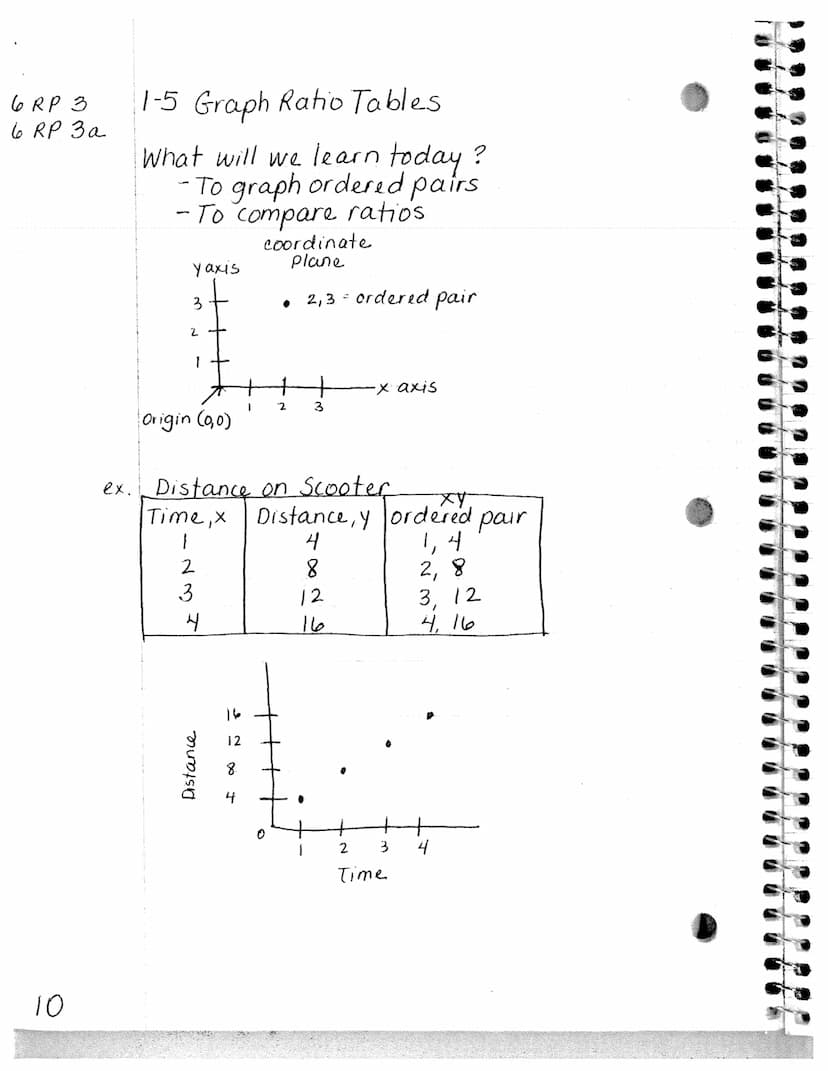 6 RP 3
6 RP 3a
1-5 Graph Ratio Tables
What will we learn today?
- To graph ordered pairs
- To compare ratios
coordinate
plane
y axis
3
2
1
2,3 = ordered pair
x axis
1 2 3
Origin (0,0)
ex. Distance on Scooter
xy
Time, x Distance, y ordered pair
1 4 1, 4
2 8 2, 8
3 12 3, 12
4 16 4, 16
16
12
8
4
Distance
0
1 2 3 4
Time
10